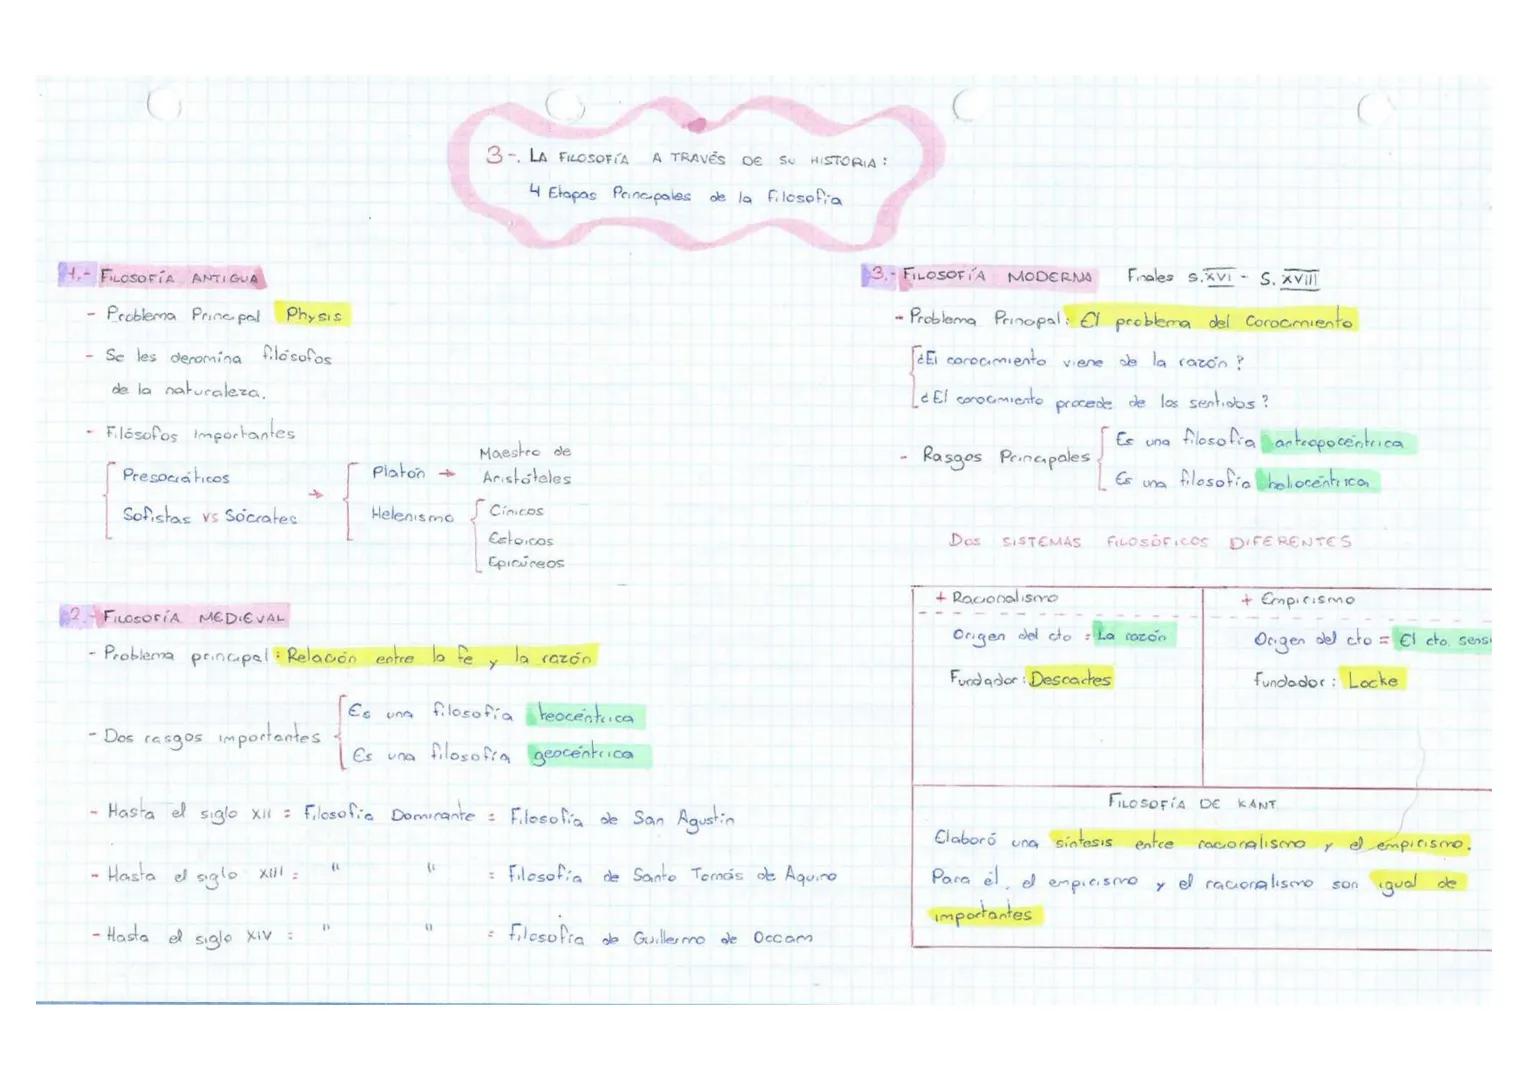 3-. LA FILOSOFÍA A TRAVÉS DE SU HISTORIA:
4 Etapas Principales de la filosofía
1.- FILOSOFÍA ANTIGUA
- Problema Principal Physis
- Se les denomina filósofos
de la naturaleza.
- Filósofos importantes
Presocráticos
Sofistas vs Sócrates
→
Platón → Maestro de
Aristóteles
Helenismo
Cínicos
Estoicos
Epicúreos
2.- FILOSOFÍA MEDIEVAL
- Problema principal: Relación entre la fe y la razón
- Dos rasgos importantes
Es una filosofía teocéntrica
Es una filosofía geocéntrica
- Hasta el siglo XII = Filosofía Dominante = Filosofía de San Agustín
- Hasta el siglo XIII = " " = Filosofía de Santo Tomás de Aquino
- Hasta el siglo XIV = " " = Filosofía de Guillermo de Occam
3.- FILOSOFÍA MODERNA Finales S.XVI - S. XVIII
- Problema Principal: El problema del Conocimiento
¿El conocimiento viene de la razón?
¿El conocimiento procede de los sentidos?
- Rasgos Principales
Es una filosofía antropocéntrica
Es una filosofía heliocéntrica
DOS SISTEMAS FILOSÓFICOS DIFERENTES
+ Racionalismo
Origen del cto = La razón
Fundador: Descartes
+ Empirismo
Origen del cto = El cto. sens
Fundador: Locke
FILOSOFÍA DE KANT
Elaboró una síntesis entre racionalismo y el empirismo.
Para él, el empirismo y el racionalismo son igual de
importantes